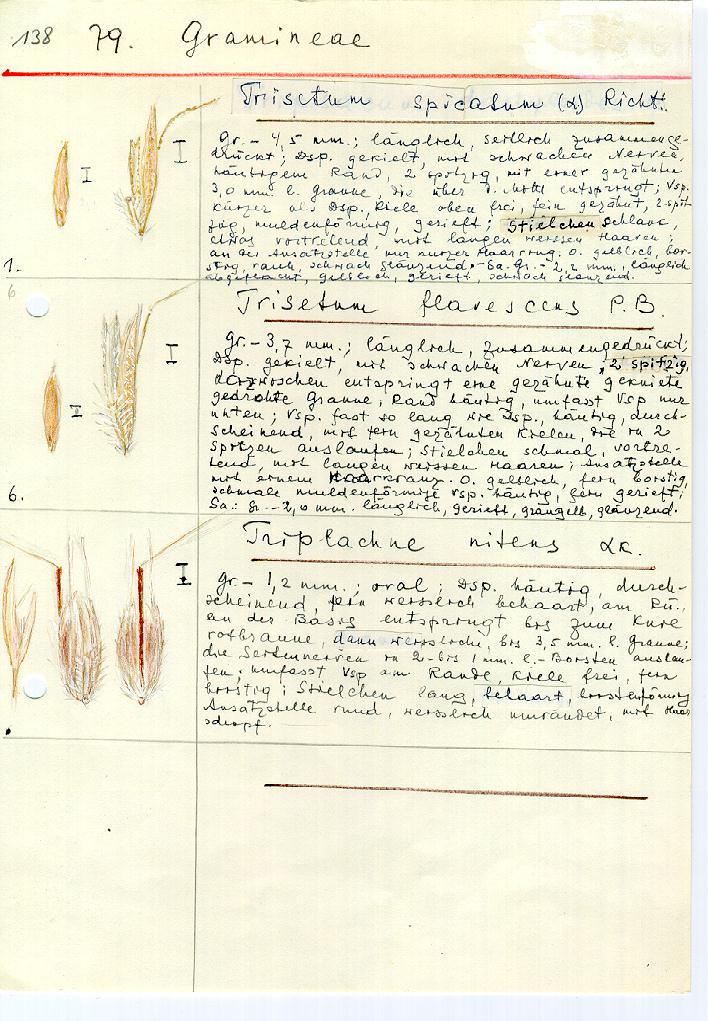 138 79. Gramineae
Trisetum spicatum (L) Richt.
Gr. - 4,5 mm.; länglich, seitlich zusammenge-
drückt; Dsp. gekielt, mit schwachen Nerven,
häutigem Rand, 2 spitzig, mit einer gezähnten
3,0 mm. l. Granne, die über d. Mitte entspringt; Vsp.
kürzer als Dsp., Kiele oben frei, fein gezähnt, 2-spit
zig, muldenförmig, gerieft; Stielchen schlank,
etwas vortretend, mit langen weissen Haaren;
an der Ansatzstelle nur kurzer Haarring. O. gelblich, bor-
stig, rauh, schwach glänzend. - Sa. Gr. - 2,2 mm., länglich
abgeflacht, gelblich, gerieft, schwach glänzend.
1.
6
Trisetum flavescens P.B.
Gr. - 3,7 mm.; länglich, zusammengedrückt;
Dsp. gekielt, mit schwachen Nerven, 2 spitzig,
dazwischen entspringt eine gezähnte geknickte
gedrehte Granne, Rand häutig, umfasst Vsp nur
unten; Vsp. fast so lang wie Dsp., häutig, durch-
scheinend, mit fein gezähnten Kielen, die in 2
Spitzen auslaufen; Stielchen schmal, vortre-
tend, mit langen weissen Haaren; Ansatzstelle
mit einem Haarkranz. O. gelblich, fein borstig,
schmale muldenförmige Vsp. häutig, fein gerieft;
Sa.: Gr. - 2,0 mm. länglich, gerieft, grüngelb, glänzend.
6.
Triplachne nitens Lk.
Gr. - 1,2 mm.; oval; Dsp. häutig, durch-
scheinend, fein weisslich behaart, am Rü.,
an der Basis entspringt bis zum Knie
rotbraune, dann weissliche, bis 3,5 mm. l. Granne;
die Seitennerven in 2- bis 1 mm. l. - Borsten auslau-
fen; umfasst Vsp am Rande, Kiele frei, fein
borstig; Stielchen lang, behaart, borstenförmig
Ansatzstelle rund, weisslich umrandet, mit Haar
schopf.